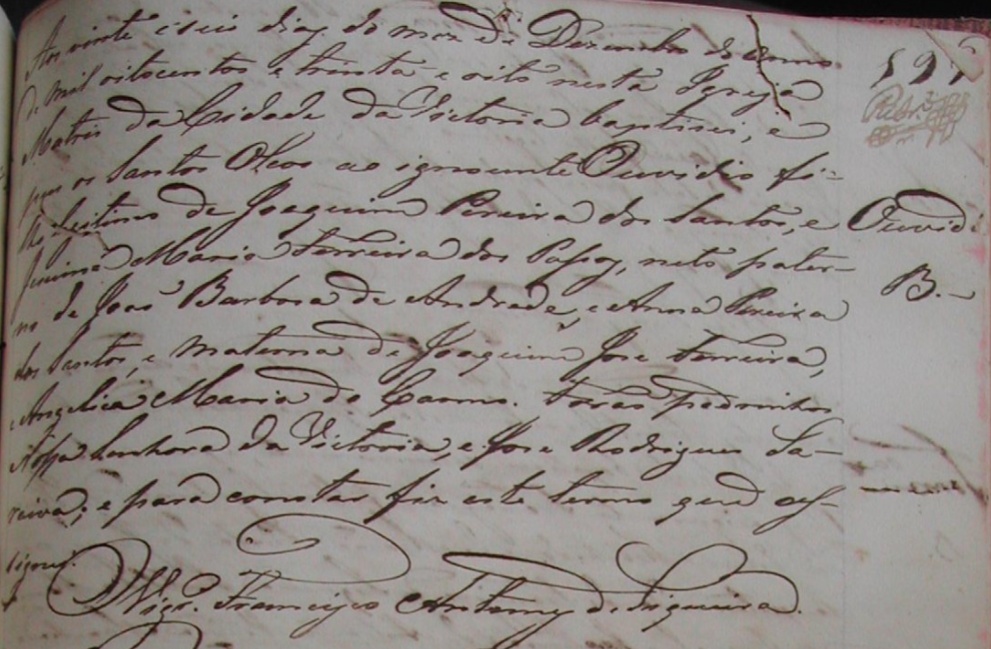 Aos vinte e seis dias do mez de Dezembro do anno
de mil oitocentos e trinta e oito nesta Igreja
Matris da Cidade da Victoria baptisei, e
pus os Santos Oleos ao ignocente Ouvidio fi-
lho legitimo de Joaquim Pereira dos Santos, e
Maria Ferreira dos Passos, neto pater-
no de João Barbosa de Andrade, e Anna Pereira
dos Santos, e materno de Joaquim Jose Ferreira,
e Angelica Maria do Carmo. Forão padrinhos
Nossa Senhora da Victoria, e Jose Rodrigues Sa-
raiva; e para constar fiz este termo que as-
signei.
Vigr.º Francisco Antunes de Siqueira.
Ouvidi
B.